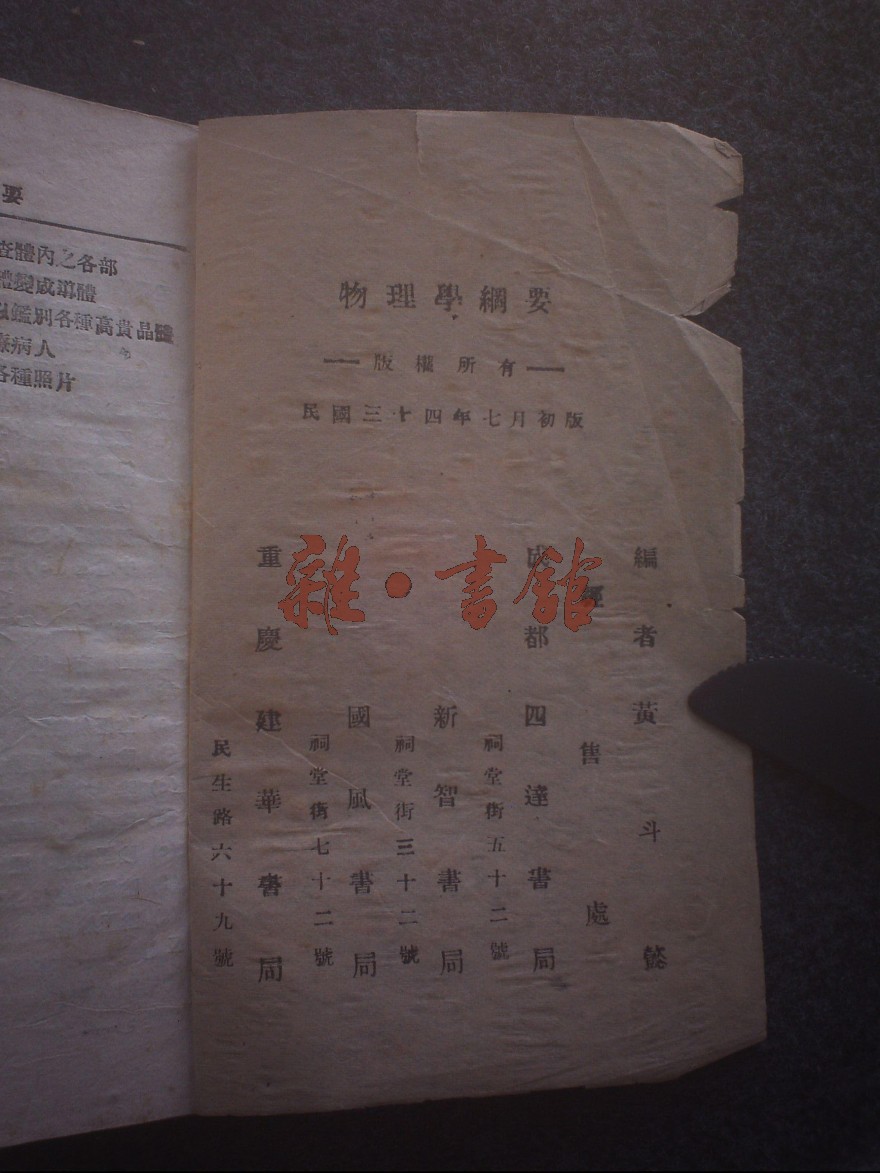 物理學綱要
版權所有
民國三十四年七月初版
編者黃斗懿
經售處
成都四達書局
祠堂街五十二號
新智書局
祠堂街三十二號
國風書局
祠堂街七十二號
重慶建華書局
民生路六十九號
雜·書館
要
查體內之各部
體變成導體
以鑑別各種高貴晶體
療病人
各種照片